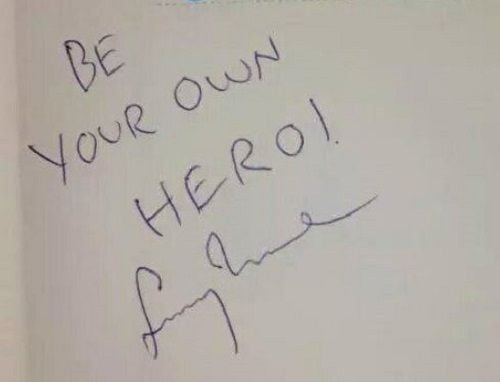 BE
YOUR OWN
HERO!